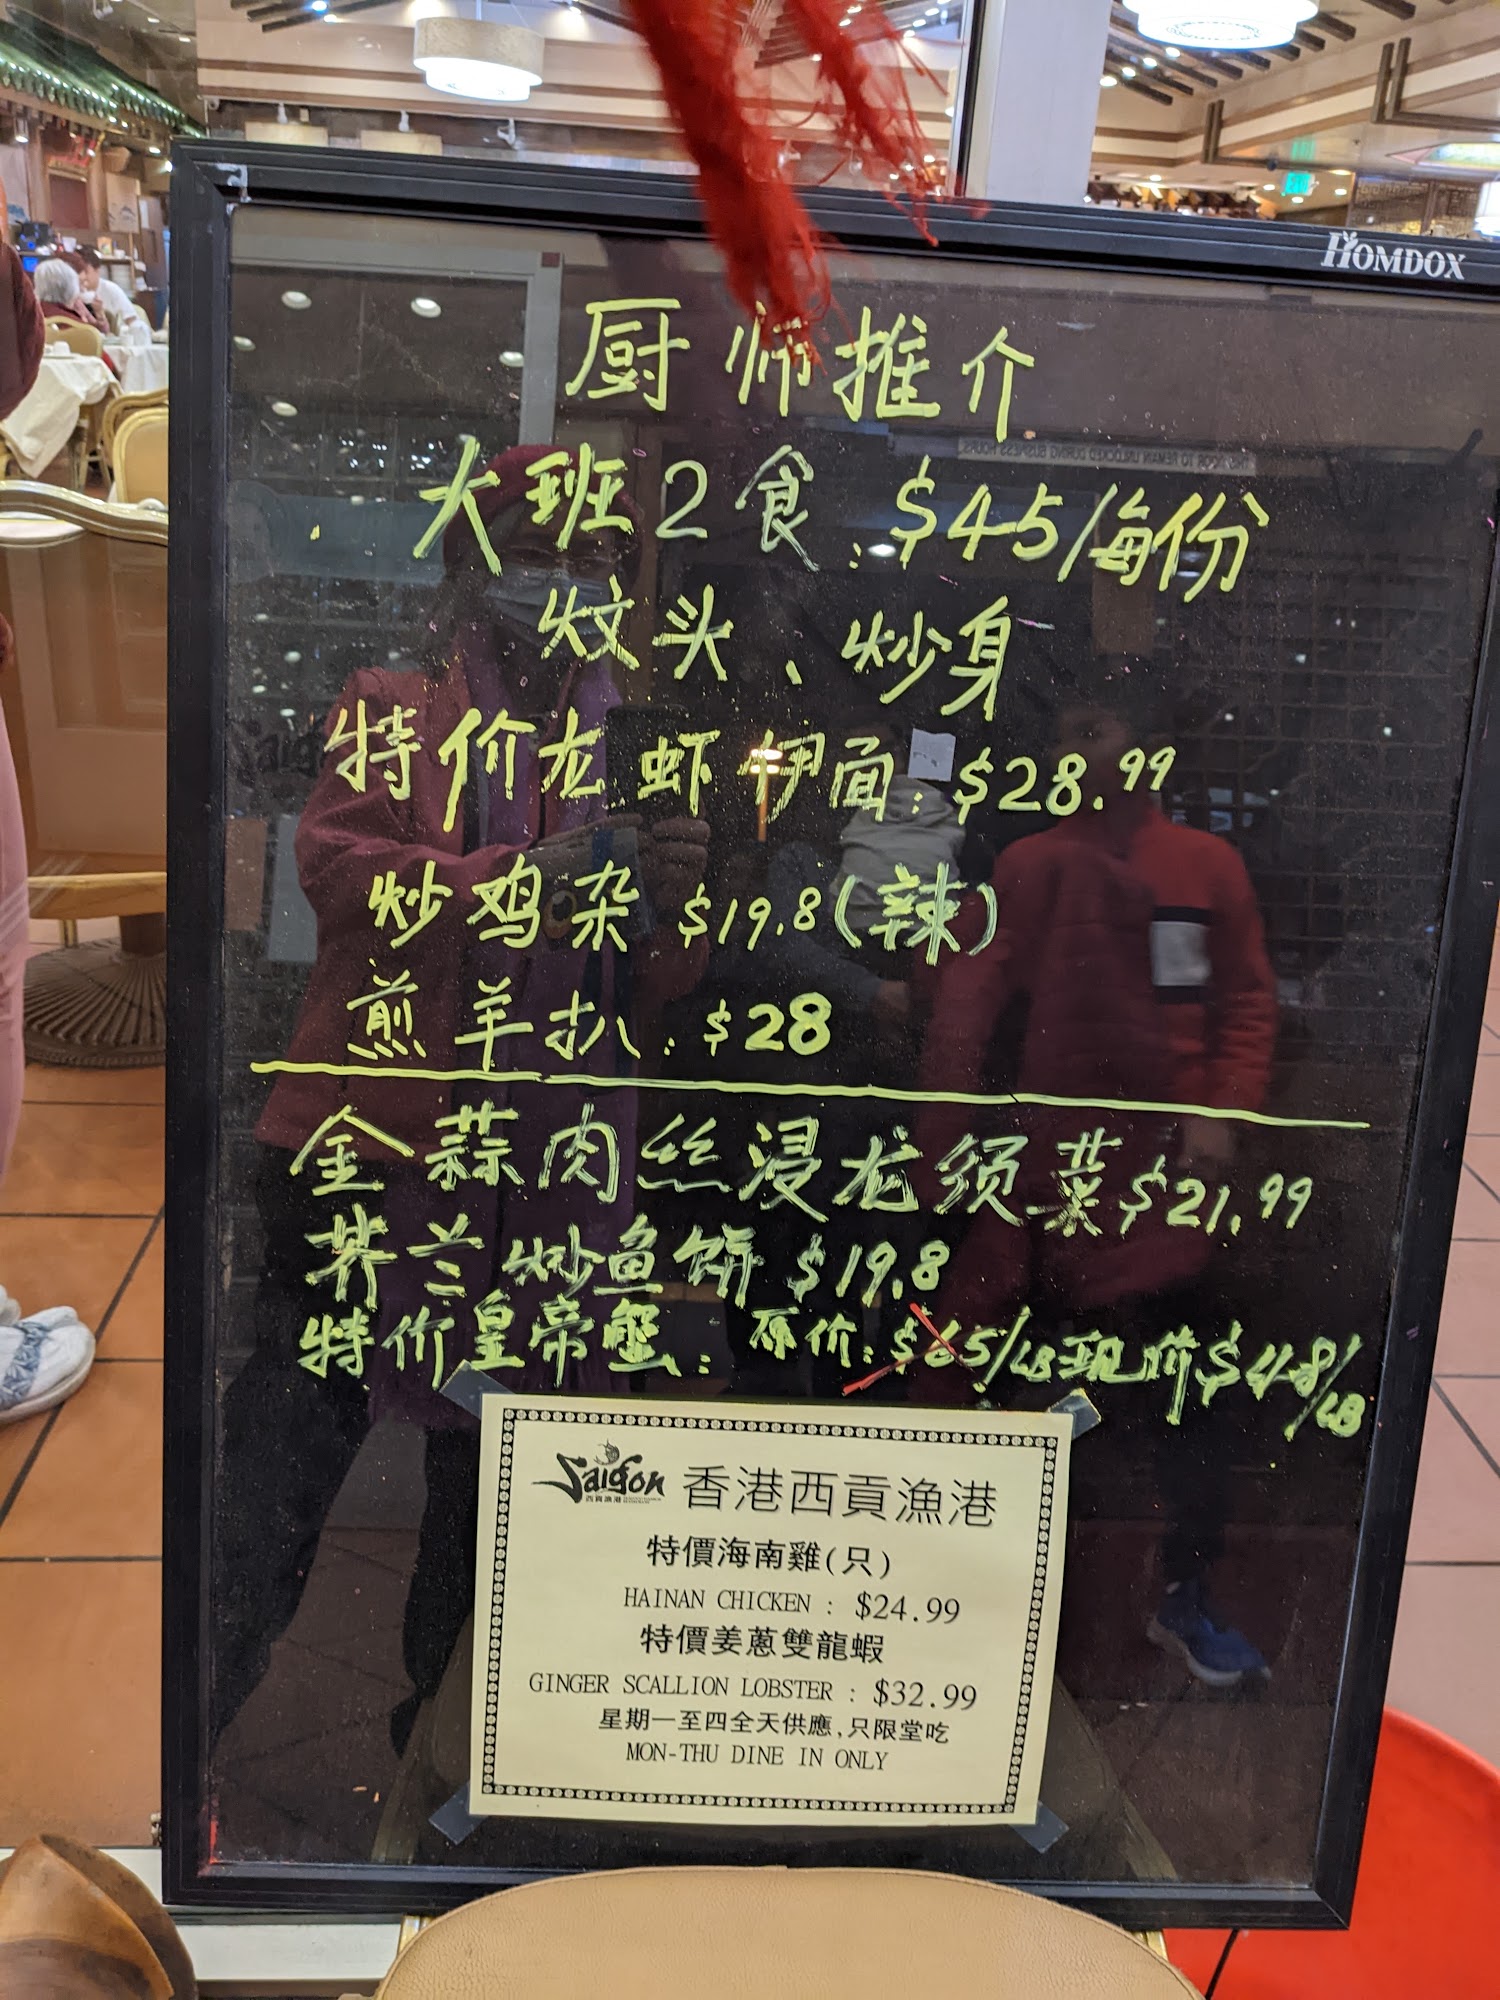 HOMDOX
厨师推介
大班2食:$45/每份
炆头、炒身
特价龙虾伊面:$28.99
炒鸡杂 $19.8(辣)
煎羊扒:$28
金蒜肉丝浸龙须菜$21.99
芥兰炒鱼饼$19.8
特价皇帝蟹:原价:$65/LB现价$48/LB
Saigon 香港西貢漁港
西貢漁港
特價海南雞(只)
HAINAN CHICKEN : $24.99
特價姜蔥雙龍蝦
GINGER SCALLION LOBSTER : $32.99
星期一至四全天供應,只限堂吃
MON-THU DINE IN ONLY